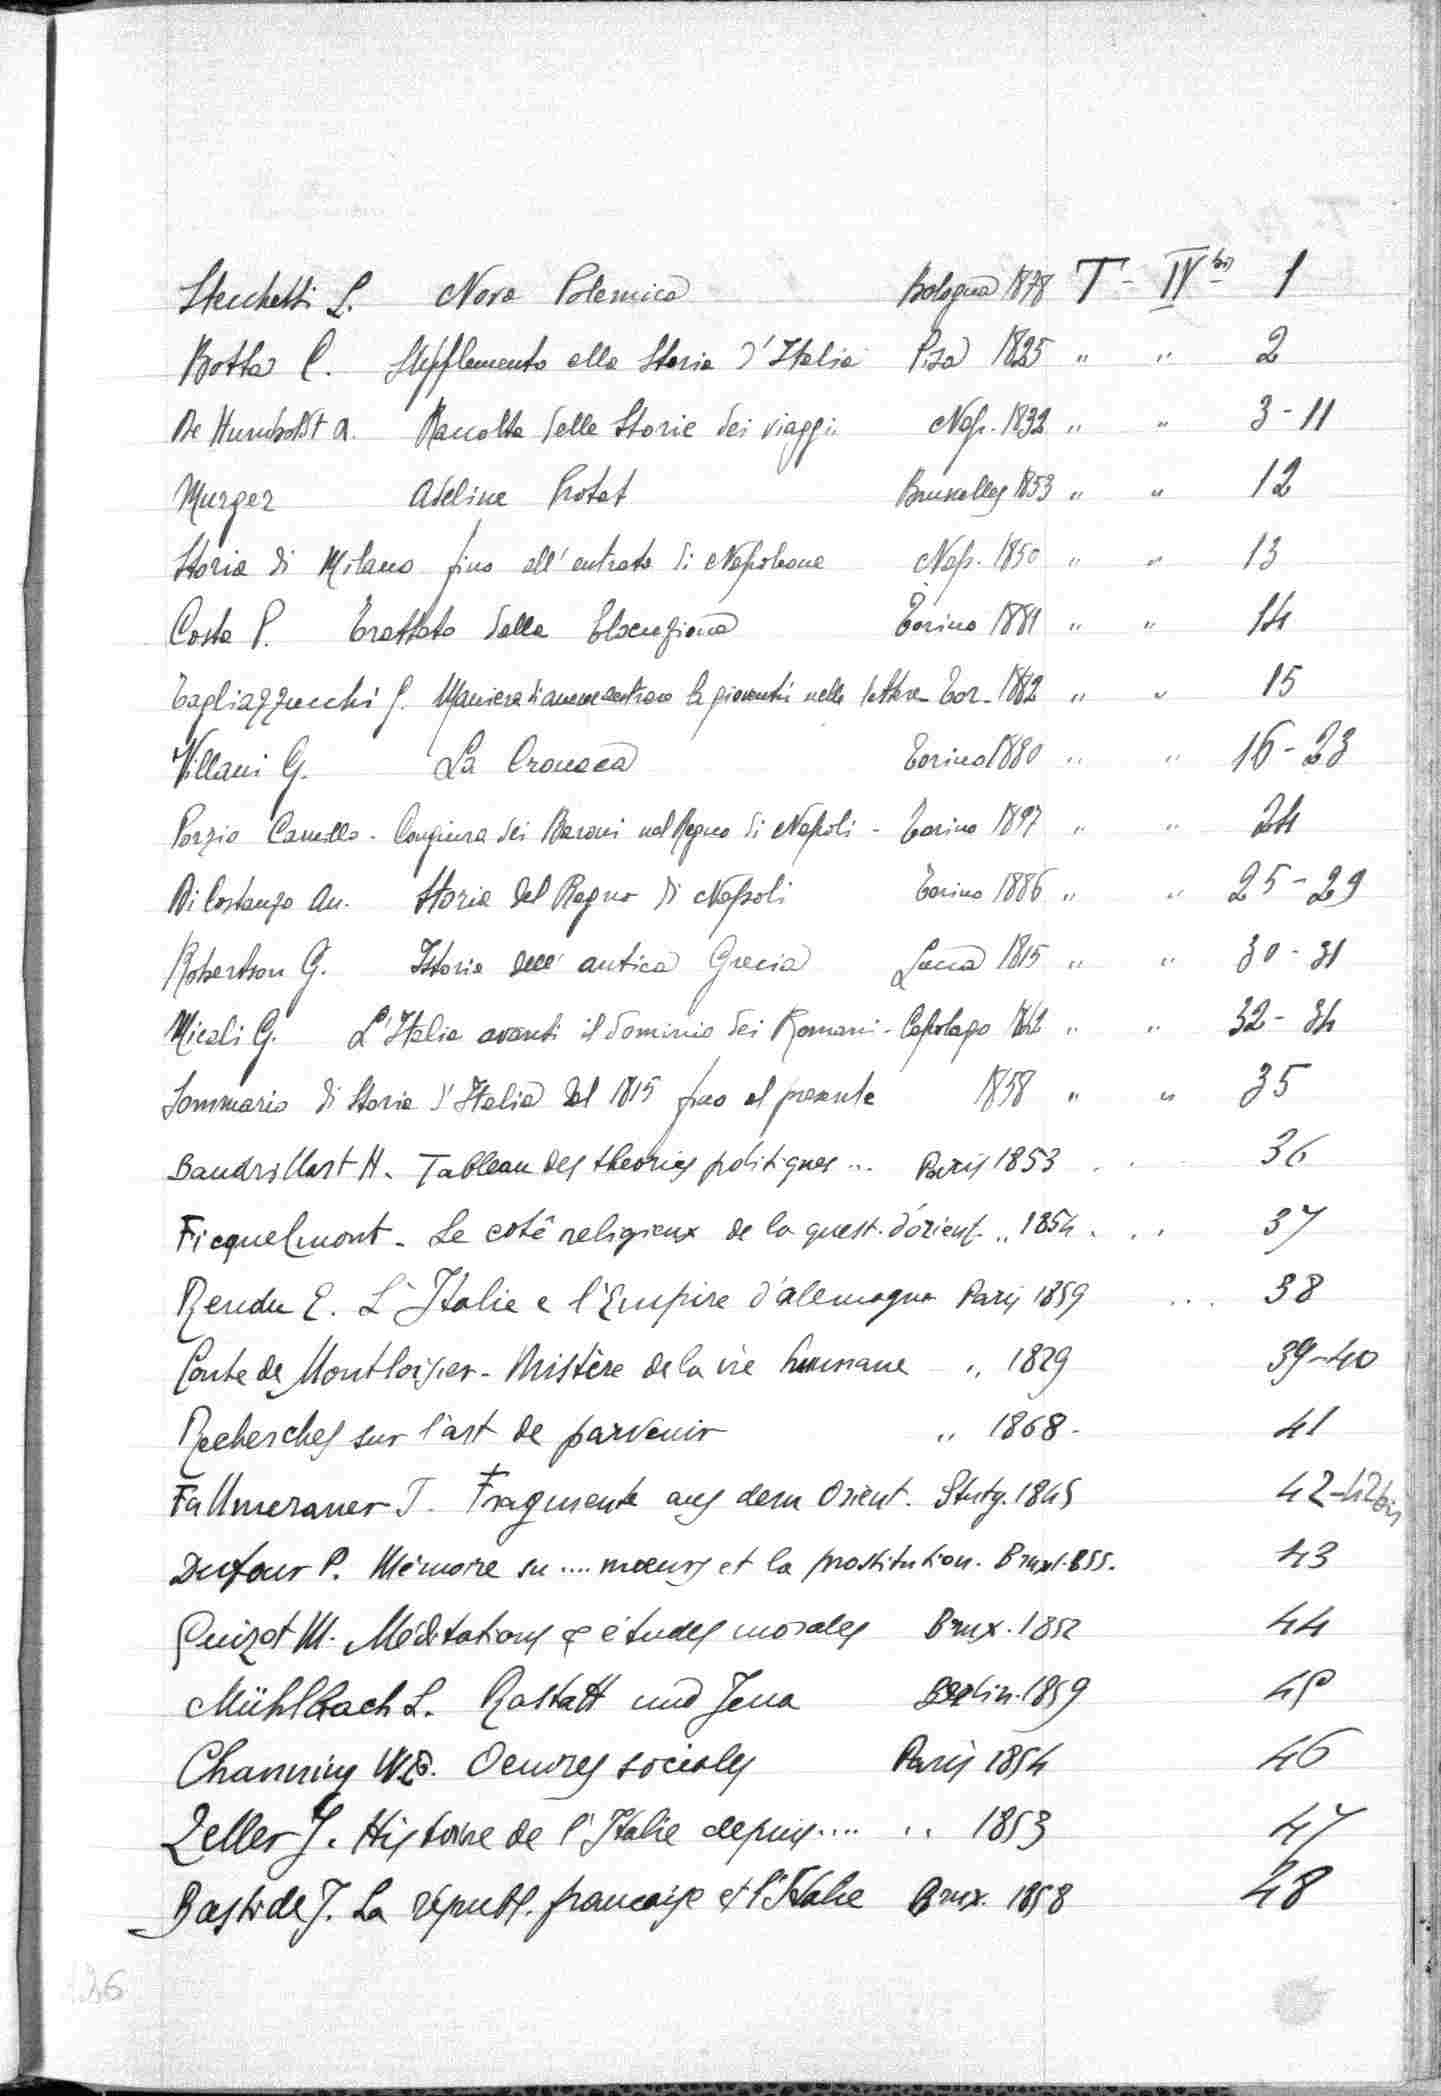 Stecchetti L. Nova Polemica Bologna 1878 T - IV bis - 1
Botta C. Supplemento alla Storia d'Italia Pisa 1825 " " 2
De Humboldt A. Raccolta delle Storie dei viaggi Nap. 1832 " " 3-11
Murger Adeline Protat Bruxelles 1853 " " 12
Storia di Milano fino all'entrata di Napoleone Nap. 1850 " " 13
Costa P. Trattato della Elocuzione Torino 1881 " " 14
Tagliazzucchi G. Maniera di ammaestrare la gioventù nelle lettere Tor. 1882 " " 15
Villani G. La Cronaca Torino 1880 " " 16-23
Porzio Camillo - Congiura dei Baroni nel Regno di Napoli - Torino 1897 " " 24
Di Costanzo An. Storia del Regno di Napoli Torino 1886 " " 25-29
Robertson G. Istoria dell'antica Grecia Lucca 1815 " " 30-31
Micali G. L'Italia avanti il dominio dei Romani - Capolago 1842 " " 32-34
Sommario di Storia d'Italia dal 1815 fino al presente 1858 " " 35
Baudrillart H. Tableau des theories politiques ... Paris 1853 . . 36
Ficquelmont - Le cotê religieux de la quest. d'orient. " 1854 . . . 37
Rendu E. L'Italie e l'Empire d'alemagne Paris 1859 ... 38
Conte de Montlosier - Mistère de la vie humane " 1829 39-40
Recherches sur l'art de parvenir " 1868. 41
Fallmeraner J. Fragmente aus dem Orient. Stutg. 1845 42-42bis
Dufour P. Mémoire su .... mœurs et la prostitution. Bruxl. 855. 43
Guizot M. Méditations & études morales Brux. 1852 44
Mühlbach L. Rastatt und Jena Berlin. 1859 45
Channing W.E. Oeuvres sociales Paris 1854 46
Zeller J. Histoire de l'Italie depuis .... " 1853 47
Bastide J. La républ. francaise et l'Italie Brux. 1858 48